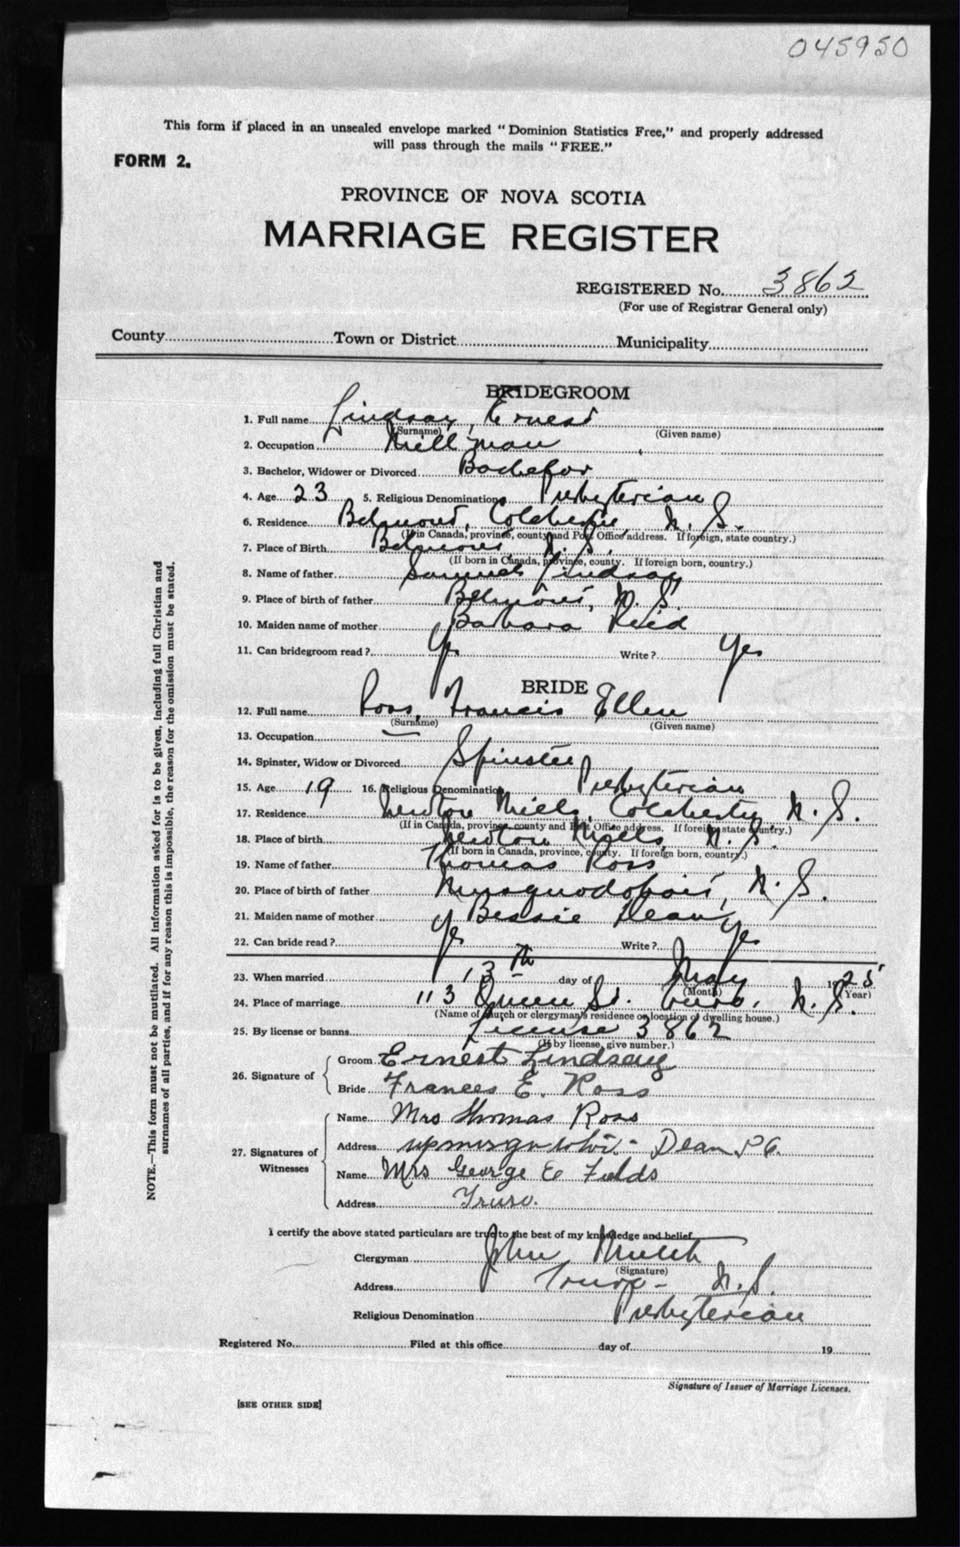 045950
This form if placed in an unsealed envelope marked "Dominion Statistics Free," and properly addressed
will pass through the mails "FREE."
FORM 2.
PROVINCE OF NOVA SCOTIA
MARRIAGE REGISTER
REGISTERED No. 3862
(For use of Registrar General only)
County Town or District Municipality
BRIDEGROOM
1. Full name Lindsay, Ernest
(Surname) (Given name)
2. Occupation Mill man
3. Bachelor, Widower or Divorced Bachelor
4. Age 23 5. Religious Denomination Presbyterian
6. Residence Belmont, Colchester, N. S.
(If in Canada, province, county and Post Office address. If foreign, state country.)
7. Place of Birth Belmont, N. S.
(If born in Canada, province, county. If foreign born, country.)
8. Name of father Samuel Lindsay
9. Place of birth of father Belmont, N. S.
10. Maiden name of mother Barbara Reid
11. Can bridegroom read? Yes Write? Yes
BRIDE
12. Full name Ross, Francis Ellen
(Surname) (Given name)
13. Occupation
14. Spinster, Widow or Divorced Spinster
15. Age 19 16. Religious Denomination Presbyterian
17. Residence Newton Mills, Colchester, N. S.
(If in Canada, province, county and Post Office address. If foreign state country.)
18. Place of birth Newton Mills, N. S.
(If born in Canada, province, county. If foreign born, country.)
19. Name of father Thomas Ross
20. Place of birth of father Musquodoboit, N. S.
21. Maiden name of mother Bessie Dean
22. Can bride read? Yes Write? Yes
23. When married 13th day of May 1925
(Month) (Year)
24. Place of marriage 113 Queen St. Truro, N. S.
(Name of church or clergyman's residence or location of dwelling house.)
25. By license or banns License 3862
(If by license, give number.)
26. Signature of Groom Ernest Lindsay
Bride Frances E. Ross
27. Signatures of Witnesses Name Mrs Thomas Ross
Address Dean P O.
Name Mrs George E Fields
Address Truro.
I certify the above stated particulars are true to the best of my knowledge and belief.
Clergyman John
(Signature)
Address Truro - N. S.
Religious Denomination Presbyterian
Registered No. Filed at this office day of 19
Signature of Issuer of Marriage Licenses.
[SEE OTHER SIDE]
NOTE.—This form must not be mutilated. All information asked for is to be given, including full Christian and
surnames of all parties, and if for any reason this is impossible, the reason for the omission must be stated.